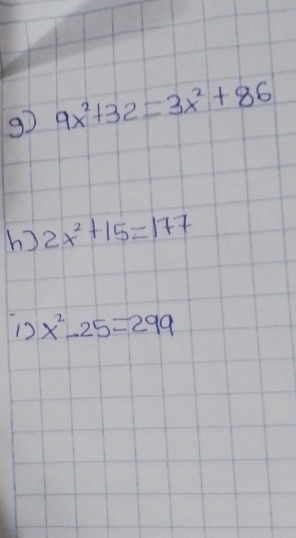 g) 9x²+32=3x²+86
h) 2x²+15=177
i) x²-25=299